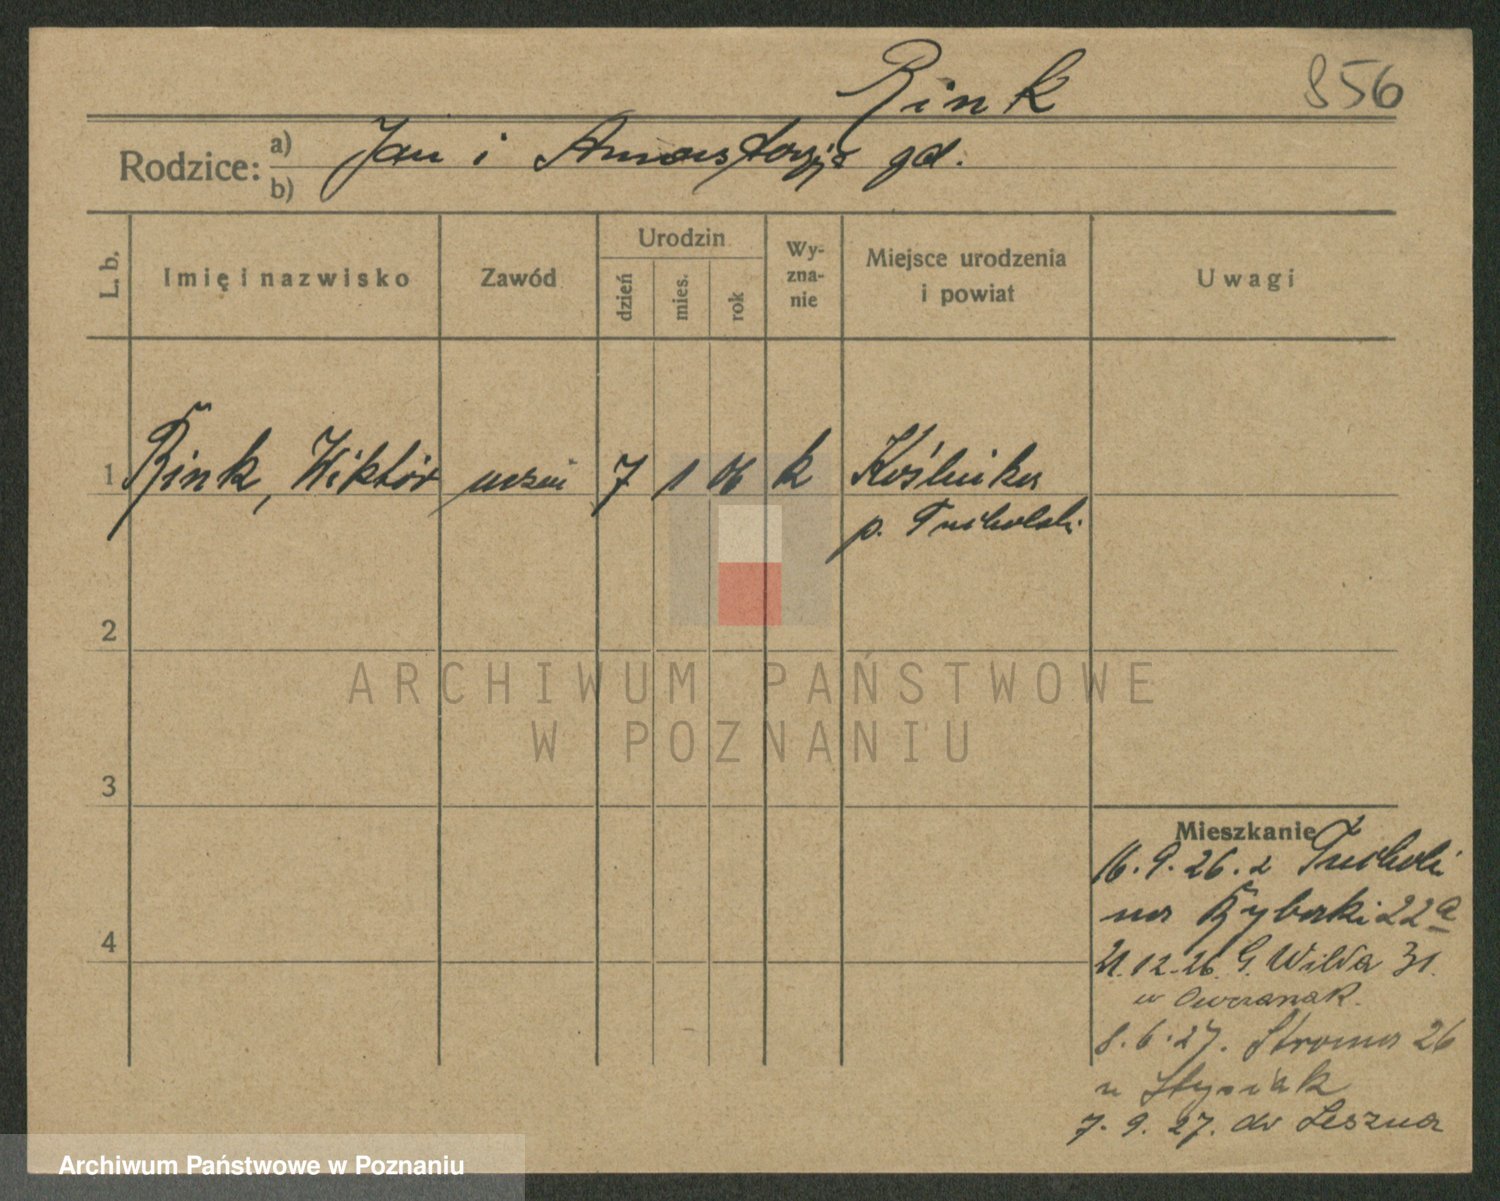 Rink 856
Rodzice: a) b) Jan i Anastazja gd.
L. b. Imię i nazwisko Zawód Urodzin dzień mies. rok Wy-zna-nie Miejsce urodzenia i powiat Uwagi
1 Rink, Wiktor uczeń 7 1 06 k Koślinka
p. Tucholski
2
ARCHIWUM PAŃSTWOWE
W POZNANIU
3
4
Mieszkanie
16.9.26. z Tucholi
na Rybaki 22a
21.12.26. G. Wilda 31.
u Owczarzak.
8.6.27. Stroma 26
u Stysiak
7.9.27. do Leszna
Archiwum Państwowe w Poznaniu